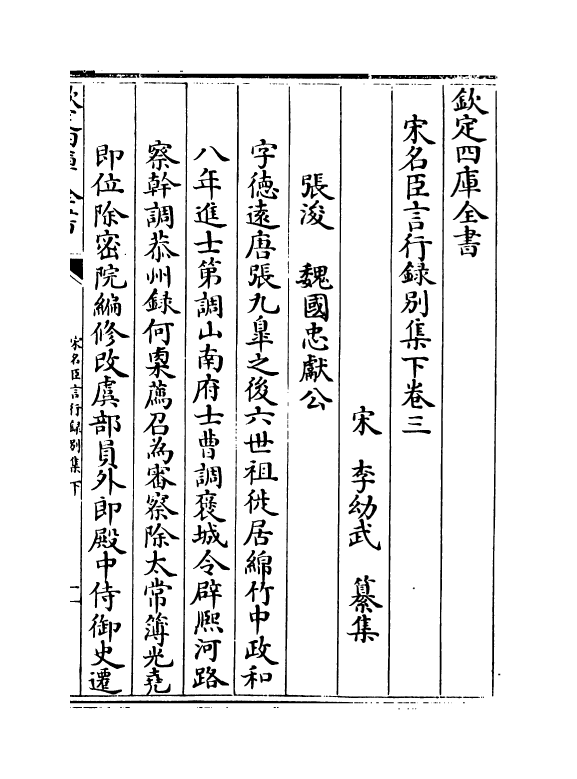 欽定四庫全書
宋名臣言行録別集下卷三
宋 李幼武 纂集
張浚 魏國忠獻公
字徳遠唐張九臯之後六世祖徙居綿竹中政和
八年進士第調山南府士曹調褒城令辟熈河路
察幹調恭州録何㮚薦召為審察除太常簿光堯
即位除密院編修改虞部員外郎殿中侍御史遷
欽定四庫全書
宋名臣言行録別集下